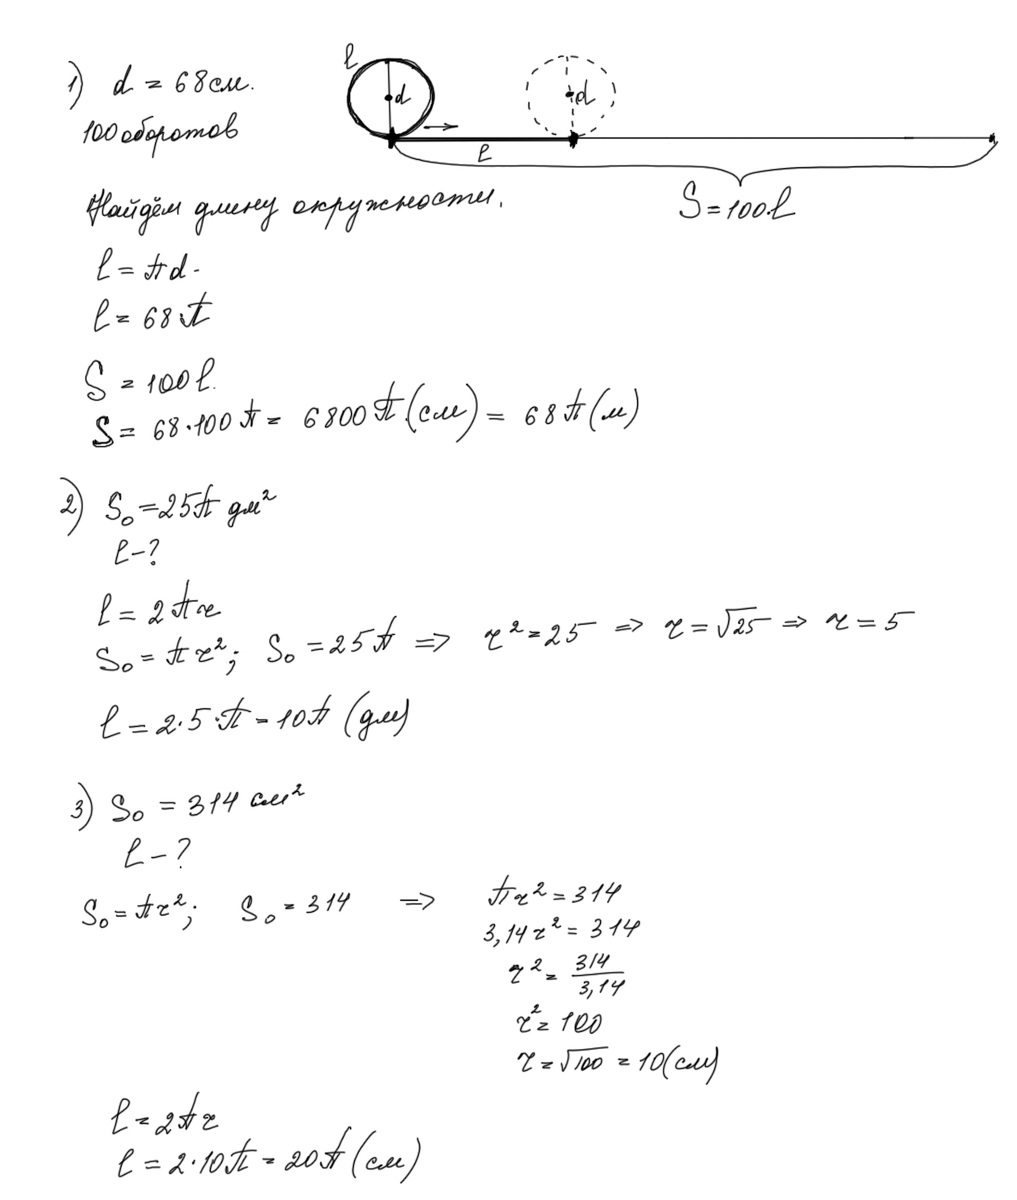 1) d = 68 см.
100 оборотов
l
d
d
l
S = 100 l
Найдём длину окружности.
l = πd.
l = 68π
S = 100 l.
S = 68·100π = 6800π (см) = 68π (м)
2) S₀ = 25π дм²
l - ?
l = 2πr
S₀ = πr²; S₀ = 25π => r² = 25 => r = √25 => r = 5
l = 2·5·π = 10π (дм)
3) S₀ = 314 см²
l - ?
S₀ = πr²; S₀ = 314 => πr² = 314
3,14r² = 314
r² = 314/3,14
r² = 100
r = √100 = 10 (см)
l = 2πr
l = 2·10π = 20π (см)